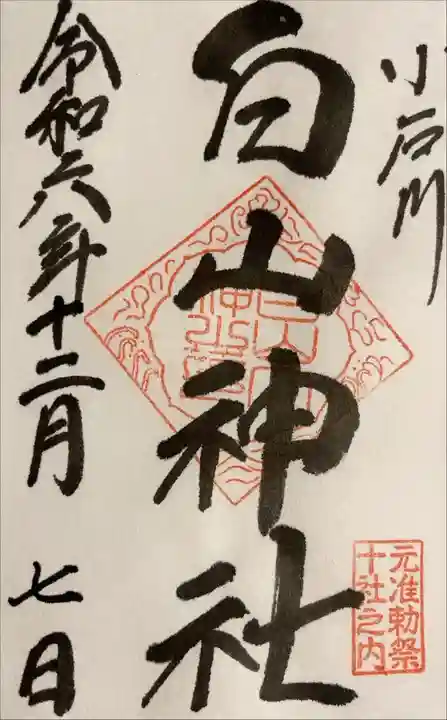 小石川
白山神社
元准勅祭
十社之内
令和六年十二月 七日